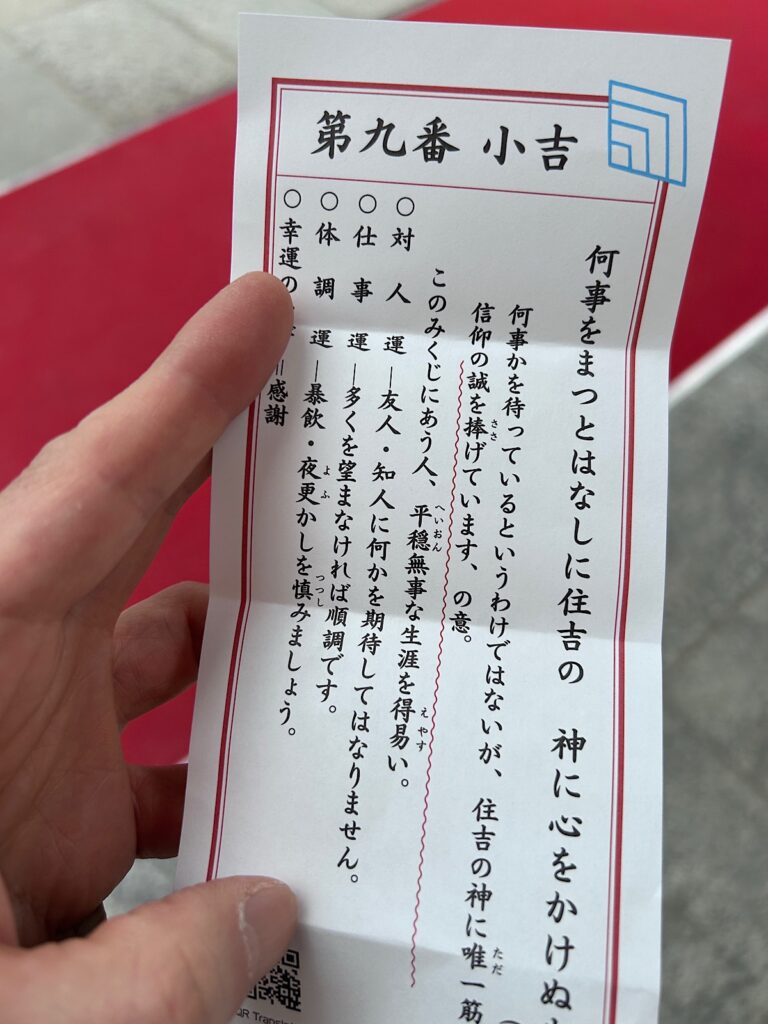 第九番 小吉
何事をまつとはなしに住吉の 神に心をかけぬ
何事かを待っているというわけではないが、住吉の神に唯一筋
信仰の誠を捧げています、の意。
このみくじにあう人、平穏無事な生涯を得易い。
○対人運―友人・知人に何かを期待してはなりません。
○仕事運―多くを望まなければ順調です。
○体調運―暴飲・夜更かしを慎みましょう。
○幸運の 感謝
QR Transl